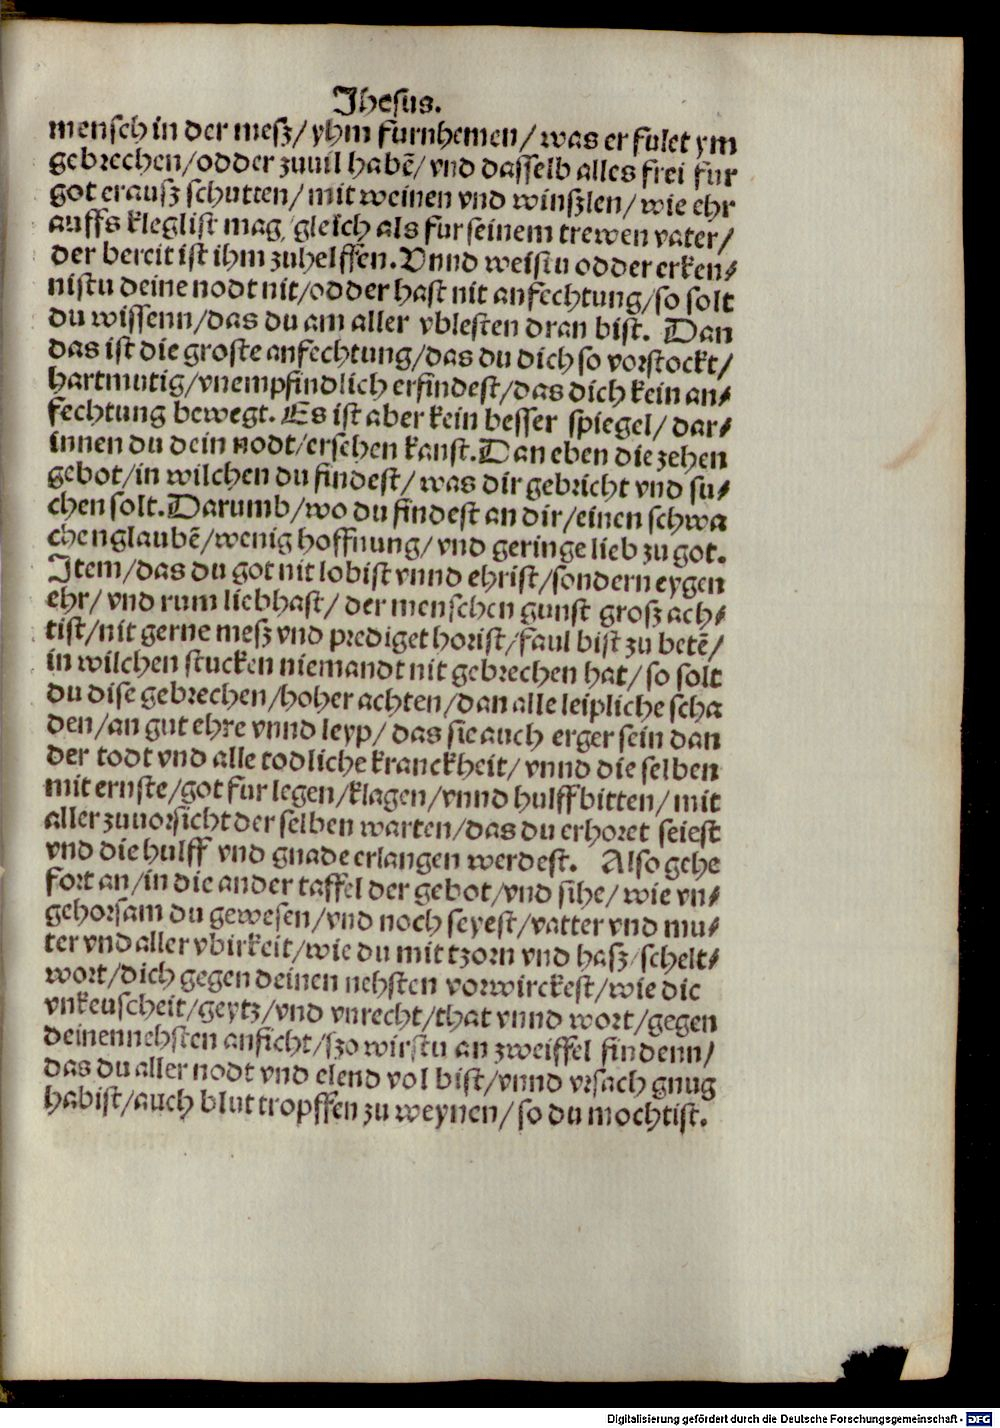 Jhesus.
mensch in der mesz/ yhm furnhemen/ was er fulet ym
gebrechen/ odder zuuil habē/ vnd dasselb alles frei fur
got erausz schutten/ mit weinen vnd winszlen/ wie ehr
auffs kleglist mag/ gleich als fur seinem trewen vater/
der bereit ist ihm zuhelffen. Vnnd weistu odder erken⸗
nistu deine nodt nit/ odder hast nit anfechtung/ so solt
du wissenn/ das du am aller vblesten dran bist. Dan
das ist die groste anfechtung/ das du dich so vorstockt/
hartmutig/ vnempfindlich erfindest/ das dich kein an⸗
fechtung bewegt. Es ist aber kein besser spiegel/ dar⸗
innen du dein nodt/ ersehen kanst. Dan eben die zehen
gebot/ in wilchen du findest/ was dir gebricht vnd su⸗
chen solt. Darumb/ wo du findest an dir/ einen schwa
chen glaubē/ wenig hoffnung/ vnd geringe lieb zu got.
Item/ das du got nit lobist vnnd ehrist/ sondern eygen
ehr/ vnd rum liebhast/ der menschen gunst grosz ach⸗
tist/ nit gerne mesz vnd prediget horist/ faul bist zu betē/
in wilchen stucken niemandt nit gebrechen hat/ so solt
du dise gebrechen/ hoher achten/ dan alle leipliche scha
den/ an gut ehre vnnd leyp/ das sie auch erger sein dan
der todt vnd alle todliche kranckheit/ vnnd die selben
mit ernste/ got fur legen/ klagen/ vnnd hulff bitten/ mit
aller zuuorsicht der selben warten/ das du erhoret seiest
vnd die hulff vnd gnade erlangen werdest. Also gehe
fort an/ in die ander taffel der gebot/ vnd sihe/ wie vn⸗
gehorsam du gewesen/ vnd noch seyest/ vatter vnd mu⸗
ter vnd aller vbirkeit/ wie du mit tzorn vnd hasz/ schelt⸗
wort/ dich gegen deinen nehsten vorwirckest/ wie die
vnkeuscheit/ geytz/ vnd vnrecht/ that vnnd wort/ gegen
deinen nehsten anficht/ szo wirstu an zweiffel findenn/
das du aller nodt vnd elend vol bist/ vnnd vrsach gnug
habist/ auch blut tropffen zu weynen/ so du mochtist.
Digitalisierung gefördert durch die Deutsche Forschungsgemeinschaft - DFG